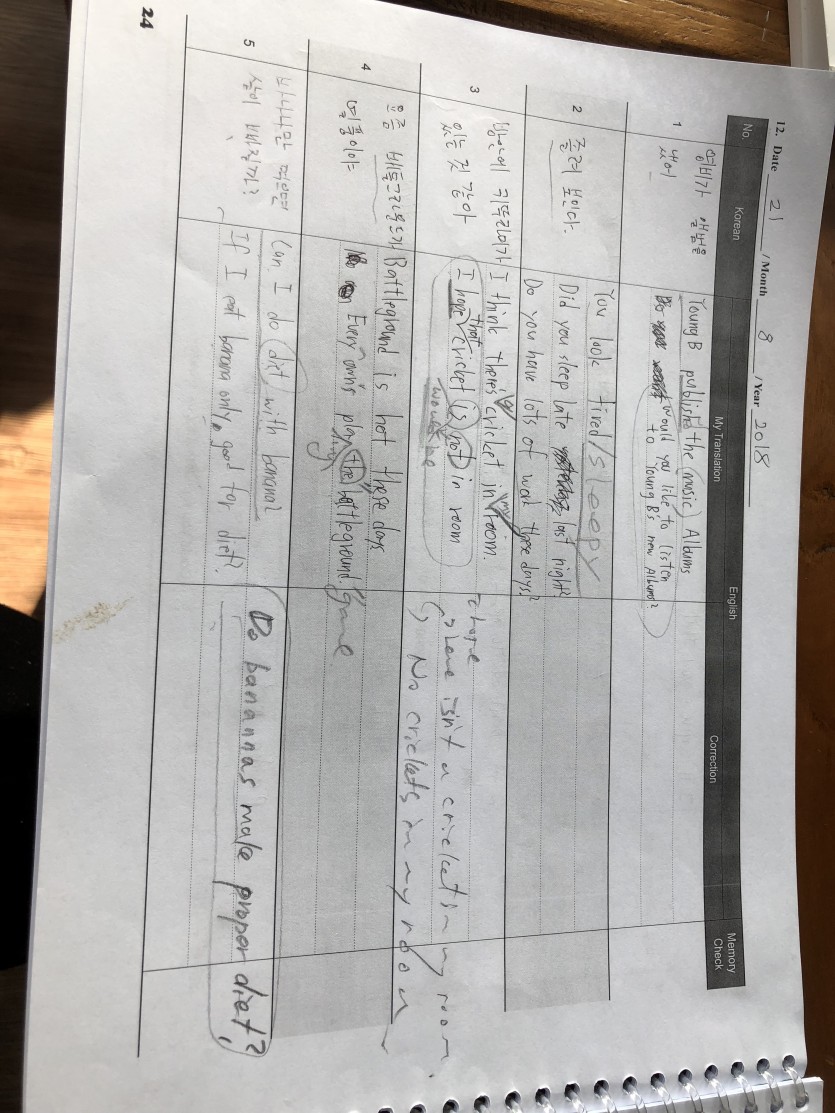 12. Date 21 / Month 8 / Year 2018
No. Korean My Translation English Correction Memory Check
1
영비가 앨범을
냈어
Young B publishe the (music) Albums
Would you like to listen
to Young B's new Album?
2
졸려 보인다.
You look tired/sleepy
Did you sleep late last night?
Do you have lots of work these days?
3
방안에 귀뚜라미가
있는 것 같아
I think there's a cricket in my room.
I hope that cricket is not in room
would be
I hope
there isn't a cricket in my room.
No crickets in my room
4
요즘 배틀그라운드가
열풍이야
Battleground is hot these days
Every one's play the battleground. game
ing
5
바나나만 먹으면
살이 빠질까?
Can I do diet with banana?
If I eat banana only, good for diet?
Do banannas make proper diet?
24